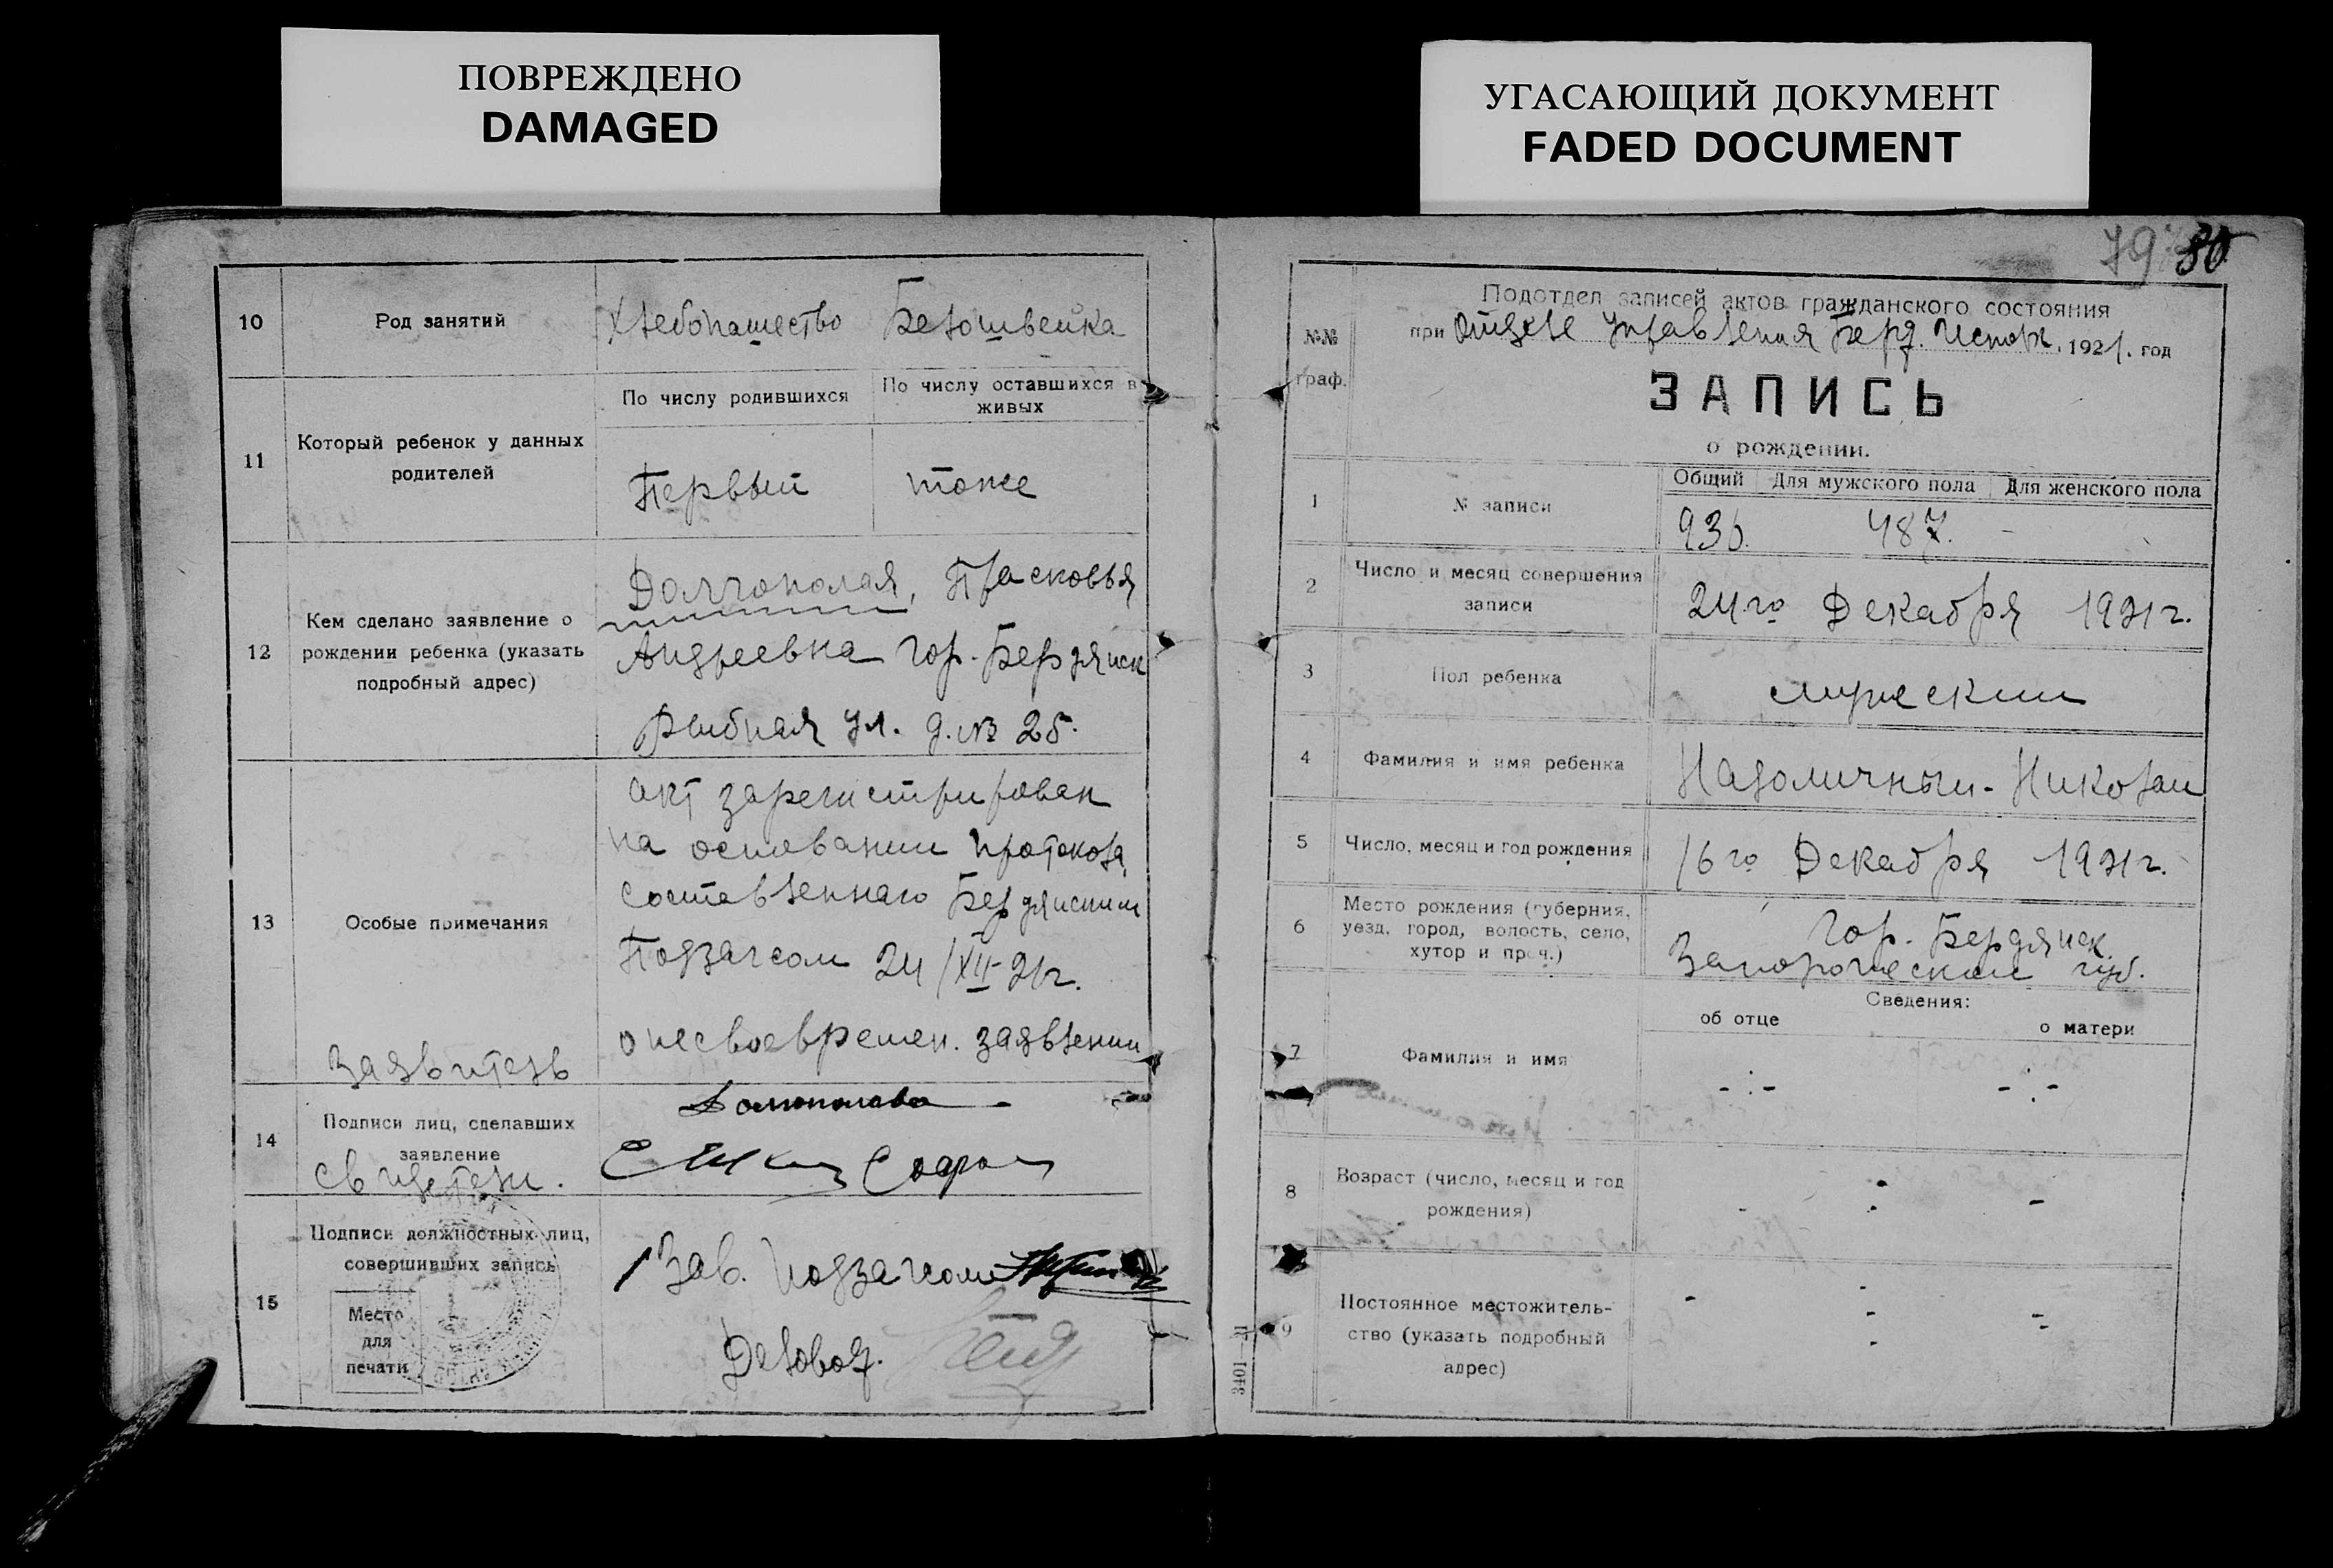 ПОВРЕЖДЕНО
DAMAGED
УГАСАЮЩИЙ ДОКУМЕНТ
FADED DOCUMENT
10 Род занятий Хлебопашество Белошвейка
11 Который ребенок у данных родителей
По числу родившихся
По числу оставшихся в живых
Первый тоже
12 Кем сделано заявление о рождении ребенка (указать подробный адрес)
Долгополая, Прасковья
Андреевна гор. Бердянск
Рыбная ул. д. № 25.
13 Особые примечания
акт зарегистрирован
на основании протокола
составленнаго Бердянским
Подзагсом 24/XII-21г.
о несвоевремен. заявлении
Заявитель
14 Подписи лиц, сделавших заявление
свидетели.
Долгополова
15 Подписи должностных лиц, совершивших запись
Место
для
печати
Зав. Подзагсом
Деловод.
79 80
№№ граф.
Подотдел записей актов гражданского состояния
при Отделе Управления Берд. Исполк. 1921. год
ЗАПИСЬ
о рождении.
1 № записи
Общий Для мужского пола Для женского пола
936. 487. -
2 Число и месяц совершения записи
24го Декабря 1921г.
3 Пол ребенка мужский
4 Фамилия и имя ребенка
Николай
5 Число, месяц и год рождения 16го Декабря 1921г.
6 Место рождения (губерния, уезд, город, волость, село, хутор и проч.)
Гор. Бердянск
Запорожской губ.
Сведения:
об отце о матери
7 Фамилия и имя
8 Возраст (число, месяц и год рождения)
9 Постоянное местожитель-
ство (указать подробный
адрес)